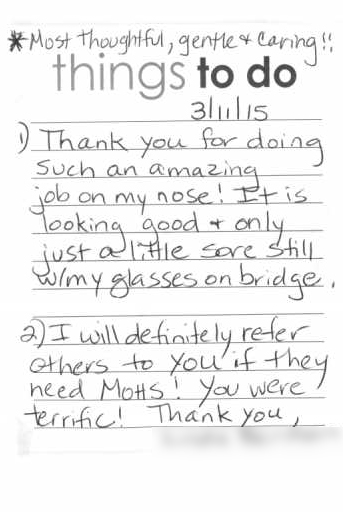 *Most thoughtful, gentle & Caring!!
things to do
3/11/15
1) Thank you for doing
such an amazing
job on my nose! It is
looking good & only
just a little sore still
w/my glasses on bridge.
2) I will definitely refer
others to you if they
need MOHS! You were
terrific! Thank you,